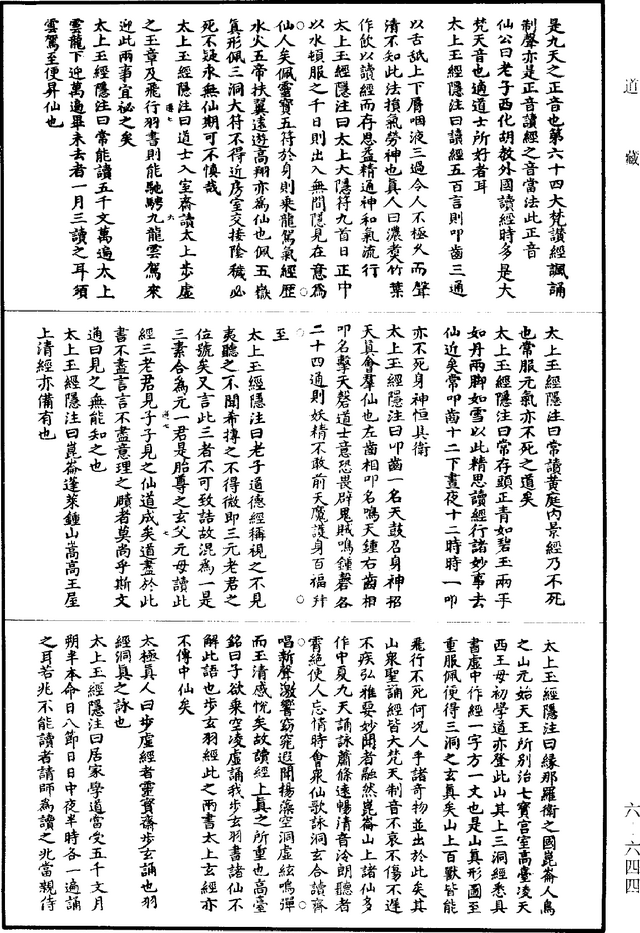 道藏
六・六四四
是九天之正音也第六十四大梵讚經諷誦
制聲亦是正音讀經之音當法此正音
仙公曰老子西化胡教外國讀經時多是大
梵天音也適道士所好者耳
太上玉經隱注曰讀經五百言則叩齒三通
以舌舐上下脣咽液三過令人不極久而聲
清不知此法損氣勞神也真人曰濃煑竹葉
作飲以讀經而存思益精通神和氣流行
太上玉經隱注曰太上大隱符九首日正中
以水頓服之千日則出入無間隱見在意爲
仙人矣佩靈寶五符於身則乘龍駕氣經歷
水火五帝扶翼遠遊高翔亦爲仙也佩五嶽
真形佩三洞大符不得近房室交接陰穢必
死不疑永無仙期可不慎哉
太上玉經隱注曰道士入室齋讀太上步虛
之玉章及飛行羽書則能馳騁九龍雲駕來
迎此兩事宜祕之矣
太上玉經隱注曰常能讀五千文萬遍太上
雲龍下迎萬遍畢未去者一月三讀之耳須
雲駕至便昇仙也
太上玉經隱注曰常讀黃庭內景經乃不死
也常服元氣亦不死之道矣
太上玉經隱注曰常存頭正青如碧玉兩手
如丹兩脚如雪以此精思讀經行諸妙事去
仙近矣常叩齒十二下晝夜十二時時一叩
亦不死身神恒具衛
太上玉經隱注曰叩齒一名天鼓召身神招
天真會羣仙也左齒相叩名鳴天鍾右齒相
叩名擊天磬道士意恐畏辟鬼賊鳴鍾磬各
二十四通則妖精不敢前天魔護身百福幷
至
太上玉經隱注曰老子道德經稱視之不見
夷聽之不聞希摶之不得微即三元老君之
位號矣又言此三者不可致詰故混爲一是
三素合爲元一君是胎尊之玄父元母讀此
經三老君見子子見之仙道成矣道盡於此
書不盡言言不盡意理之賾者莫尚乎斯文
通曰見之無能知之也
太上玉經隱注曰崑崙蓬萊鍾山嵩高王屋
上清經亦備有也
太上玉經隱注曰緣那羅衛之國崑崙人鳥
之山元始天王所別治七寶宮室高臺凌天
西王母初學道亦登此山其上三洞經悉具
書虛中作經一字方一丈也是山真形圖至
重服佩便得三洞之玄真矣山上百獸皆能
飛行不死何況人乎諸奇物並出於此矣其
山衆聖誦經皆大梵天制音不哀不傷不遲
不疾弘雅要妙聞者融然崑崙山上諸仙多
作中夏九天誦詠蕭條遠暢清音泠朗聽者
霄絕使人忘情時會衆仙歌詠洞玄合讀齊
唱新聲激響窈窕遐聞揚藻空洞虛絃鳴彈
而玉清感恍矣故讀經上真之所重也高臺
銘曰子欲乘空凌虛誦我步玄羽書諸仙不
解此語也步玄羽經此之兩書太上玄經亦
不傳中仙矣
太極真人曰步虛經者靈寶齋步玄誦也羽
經洞真之詠也
太上玉經隱注曰居家學道當受五千文月
朔半本命日八節日日中夜半時各一遍誦
之耳若兆不能讀者請師爲讀之兆當親侍